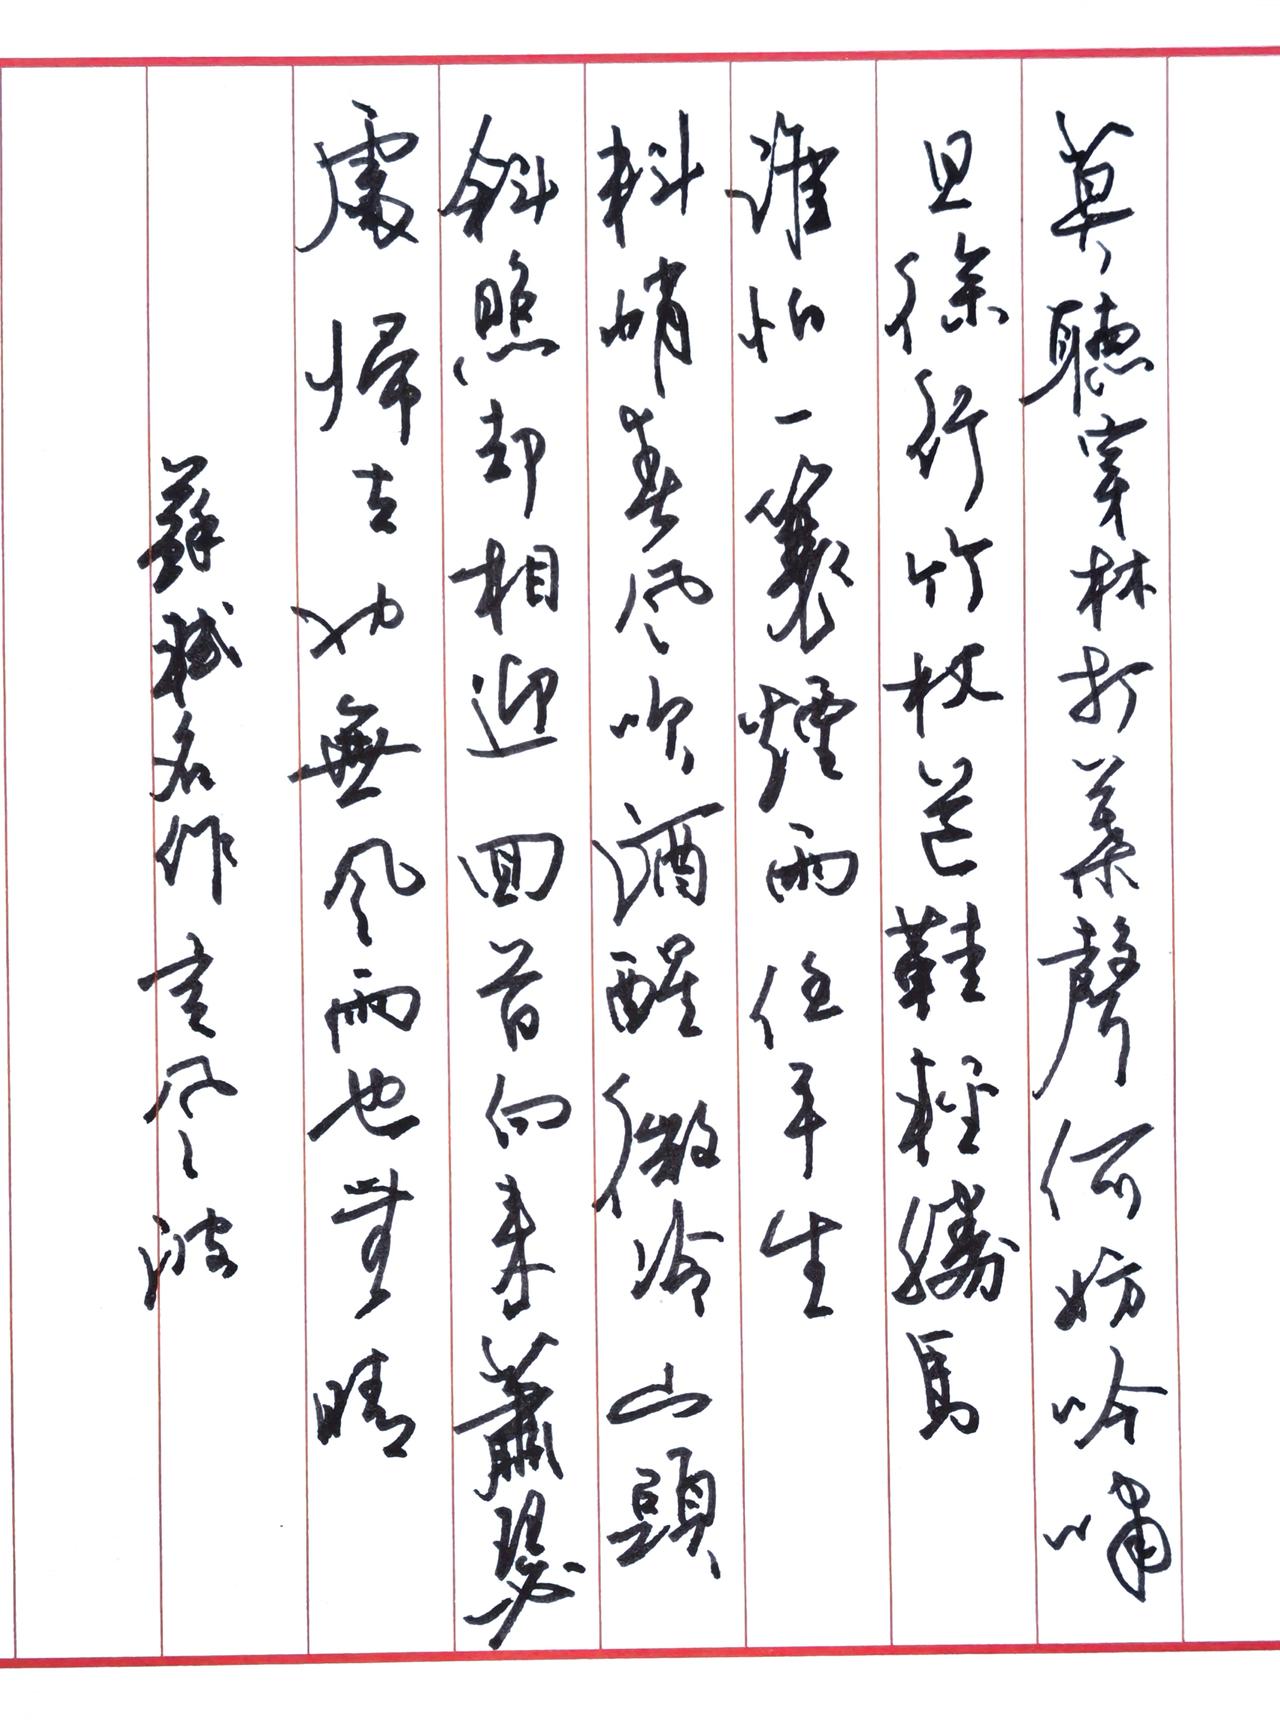 莫聽穿林打葉聲何妨吟嘯
且徐行竹杖芒鞋輕勝馬
誰怕一蓑煙雨任平生
料峭春风吹酒醒微冷山頭
斜照却相迎回首向来蕭瑟
處帰去也無风雨也無晴
蘇軾名作定风波